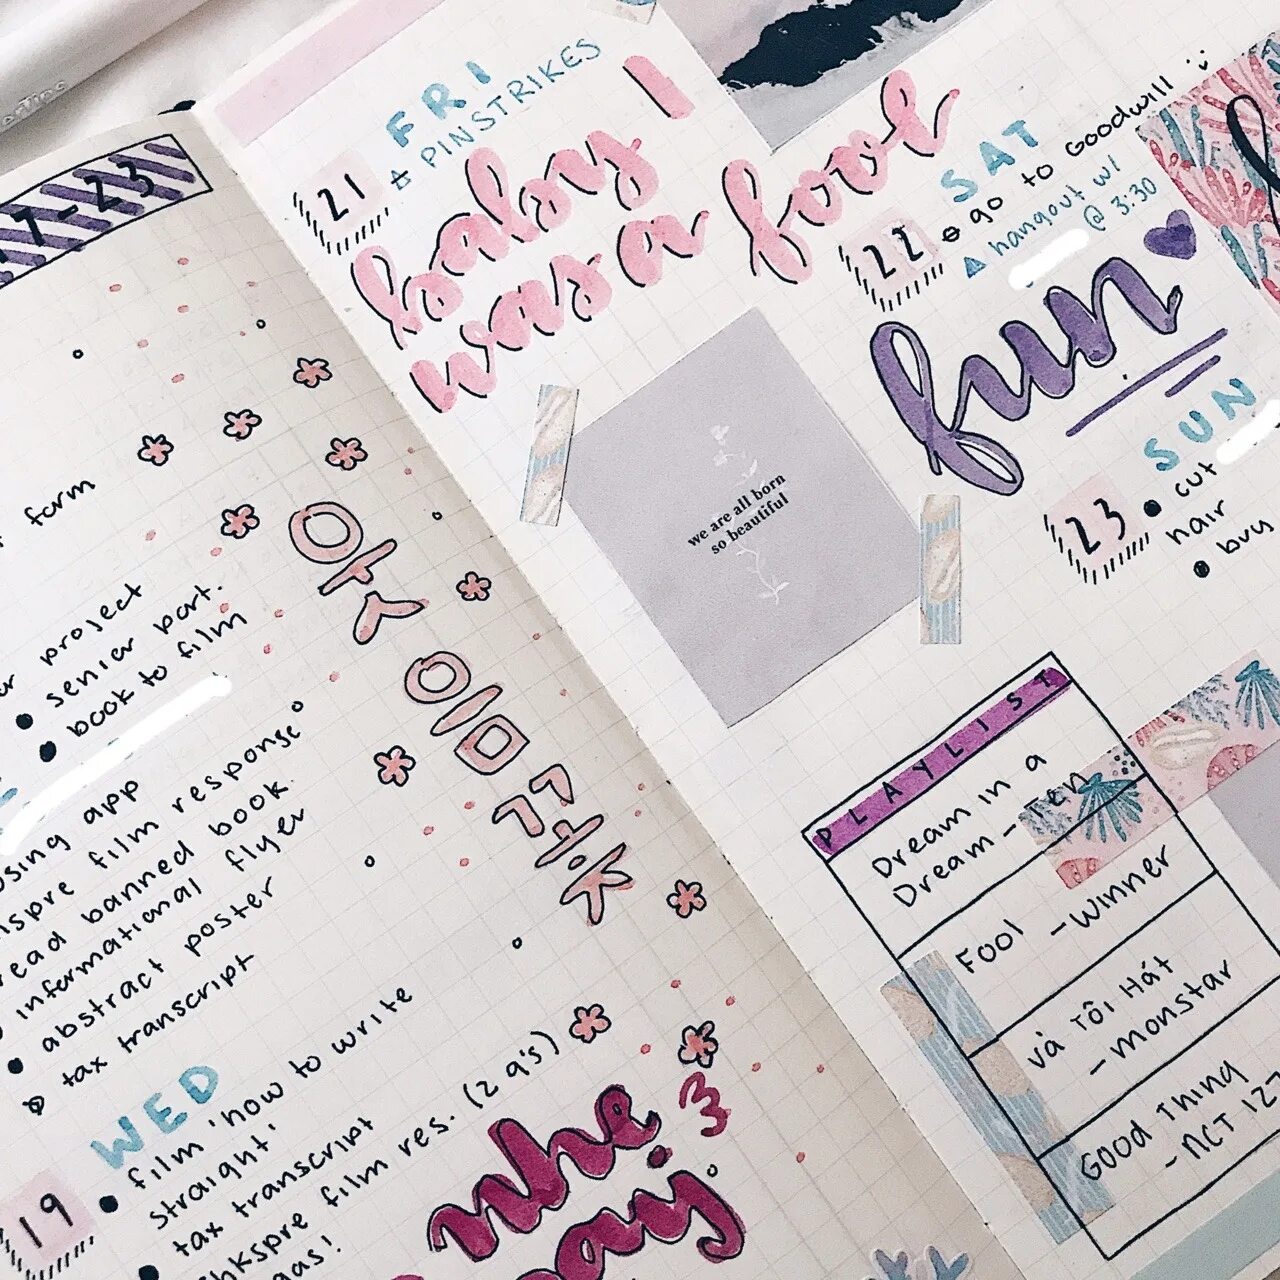 7-23
form
project
senior port.
book to film
app
film response
read banned book.
informational flyer
abstract poster
tax transcript
WED
19
film 'how to write
straight'
tax transcript
film res. (2 q's)
FRI
21
PINSTRIKES
baby I
was a fool
SAT
22
go to Goodwill
hangout w/
@ 3:30
fun
SUN
23
cut
hair
buy
we are all born
so beautiful
PLAYLIST
Dream in a
Dream - Ten
Fool - Winner
Và Tôi Hát
- Monstar
Good Thing
- NCT 127